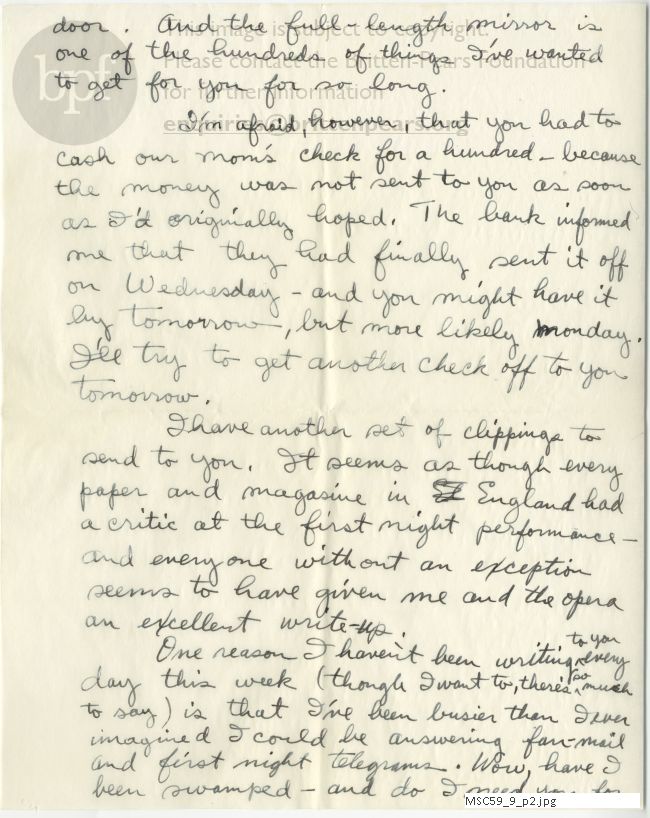 door. And the full-length mirror is
This image is subject to copyright.
one of the hundreds of things I've wanted
Please contact the Britten-Pears Foundation
to get for you for so long.
bpf
for further information
I'm afraid, however, that you had to
enquiries@brittenpears.org
cash our mom's check for a hundred - because
the money was not sent to you as soon
as I'd originally hoped. The bank informed
me that they had finally sent it off
on Wednesday - and you might have it
by tomorrow, but more likely Monday.
I'll try to get another check off to you
tomorrow.
I have another set of clippings to
send to you. It seems as though every
paper and magasine in England had
a critic at the first night performance -
and everyone without an exception
seems to have given me and the opera
an excellent write-up.
One reason I haven't been writing to you every
day this week (though I want to, there's so much
to say) is that I've been busier than I ever
imagined I could be answering fan-mail
and first night telegrams. Wow, have I
been swamped - and do I need you for
MSC59_9_p2.jpg